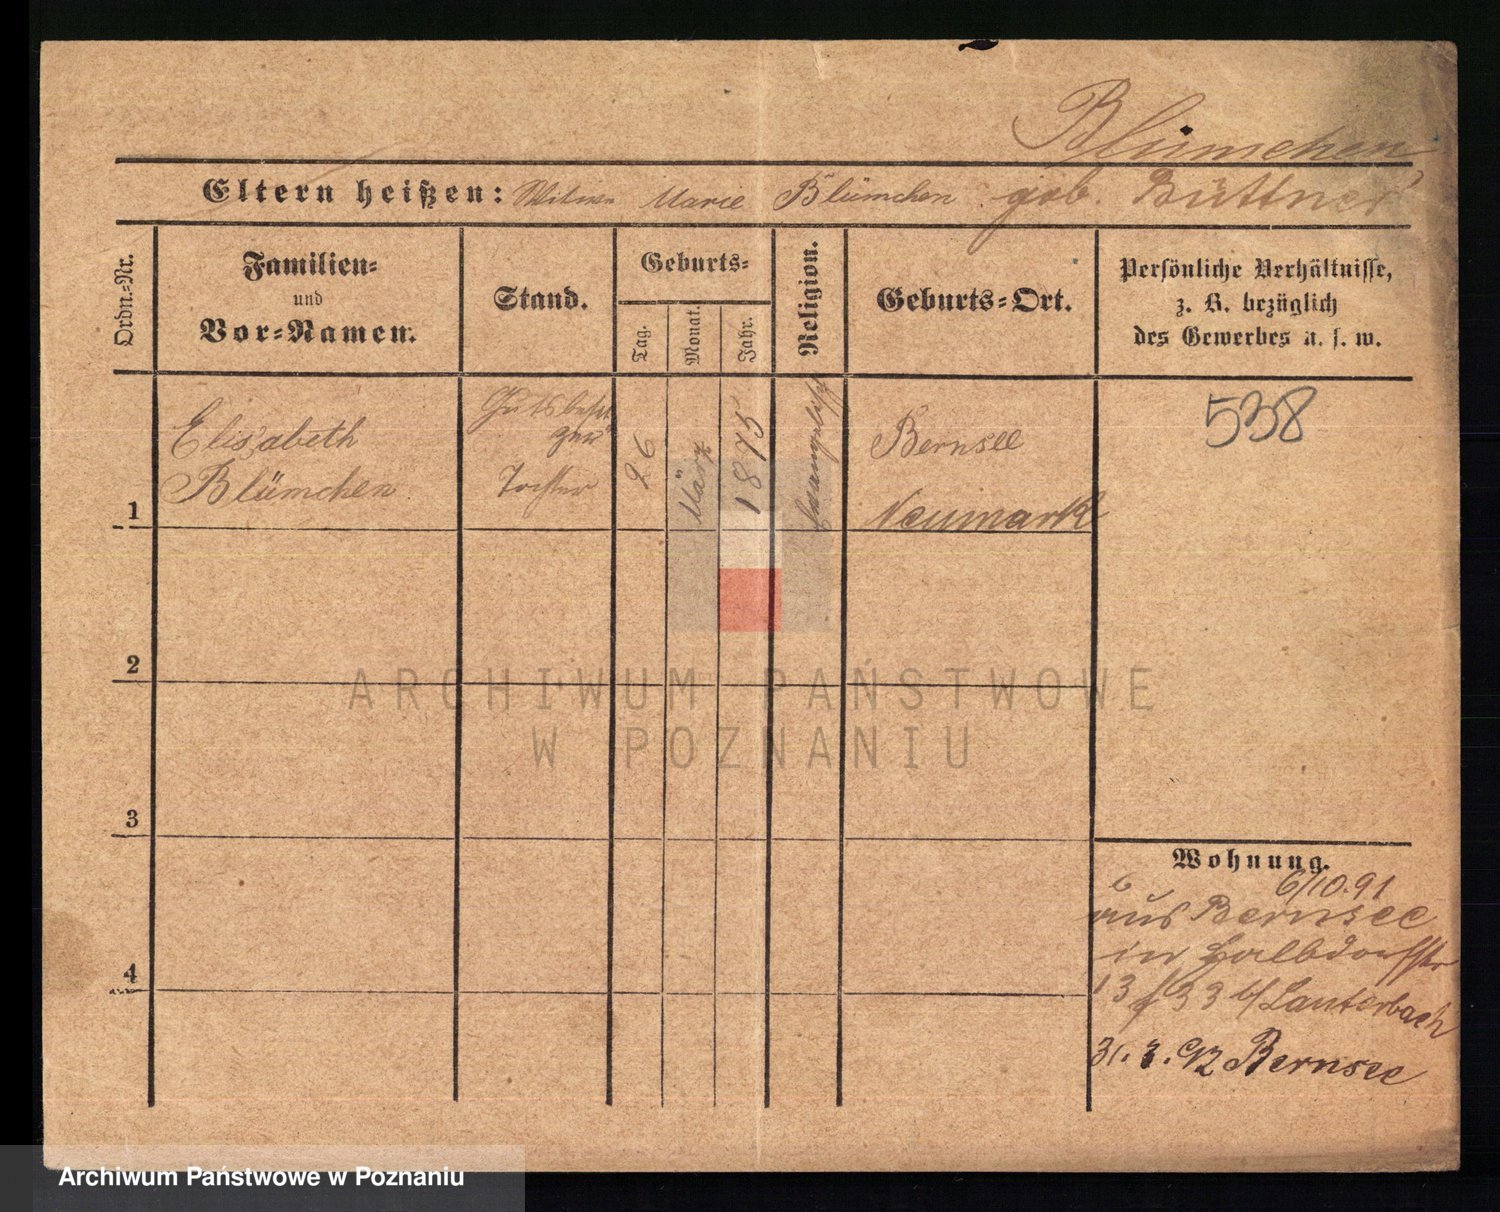 Blümchen
Eltern heißen: Witwe Marie Blümchen geb. Büttner
Ordn.-Nr.
Familien-
und
Vor-Namen.
Stand.
Geburts-
Tag.
Monat.
Jahr.
Religion.
Geburts-Ort.
Persönliche Verhältnisse,
z. B. bezüglich
des Gewerbes u. s. w.
1
Elisabeth
Blümchen
Gutsbesit
zers
Tochter
26
März
1875
evangelisch
Bernsee
Neumark
538
2
3
4
Wohnung.
6/10.91
aus Bernsee
in Halbdorfstr
13 b/ Lauterbach
31.3.92 Bernsee
ARCHIWUM PAŃSTWOWE
W POZNANIU
Archiwum Państwowe w Poznaniu